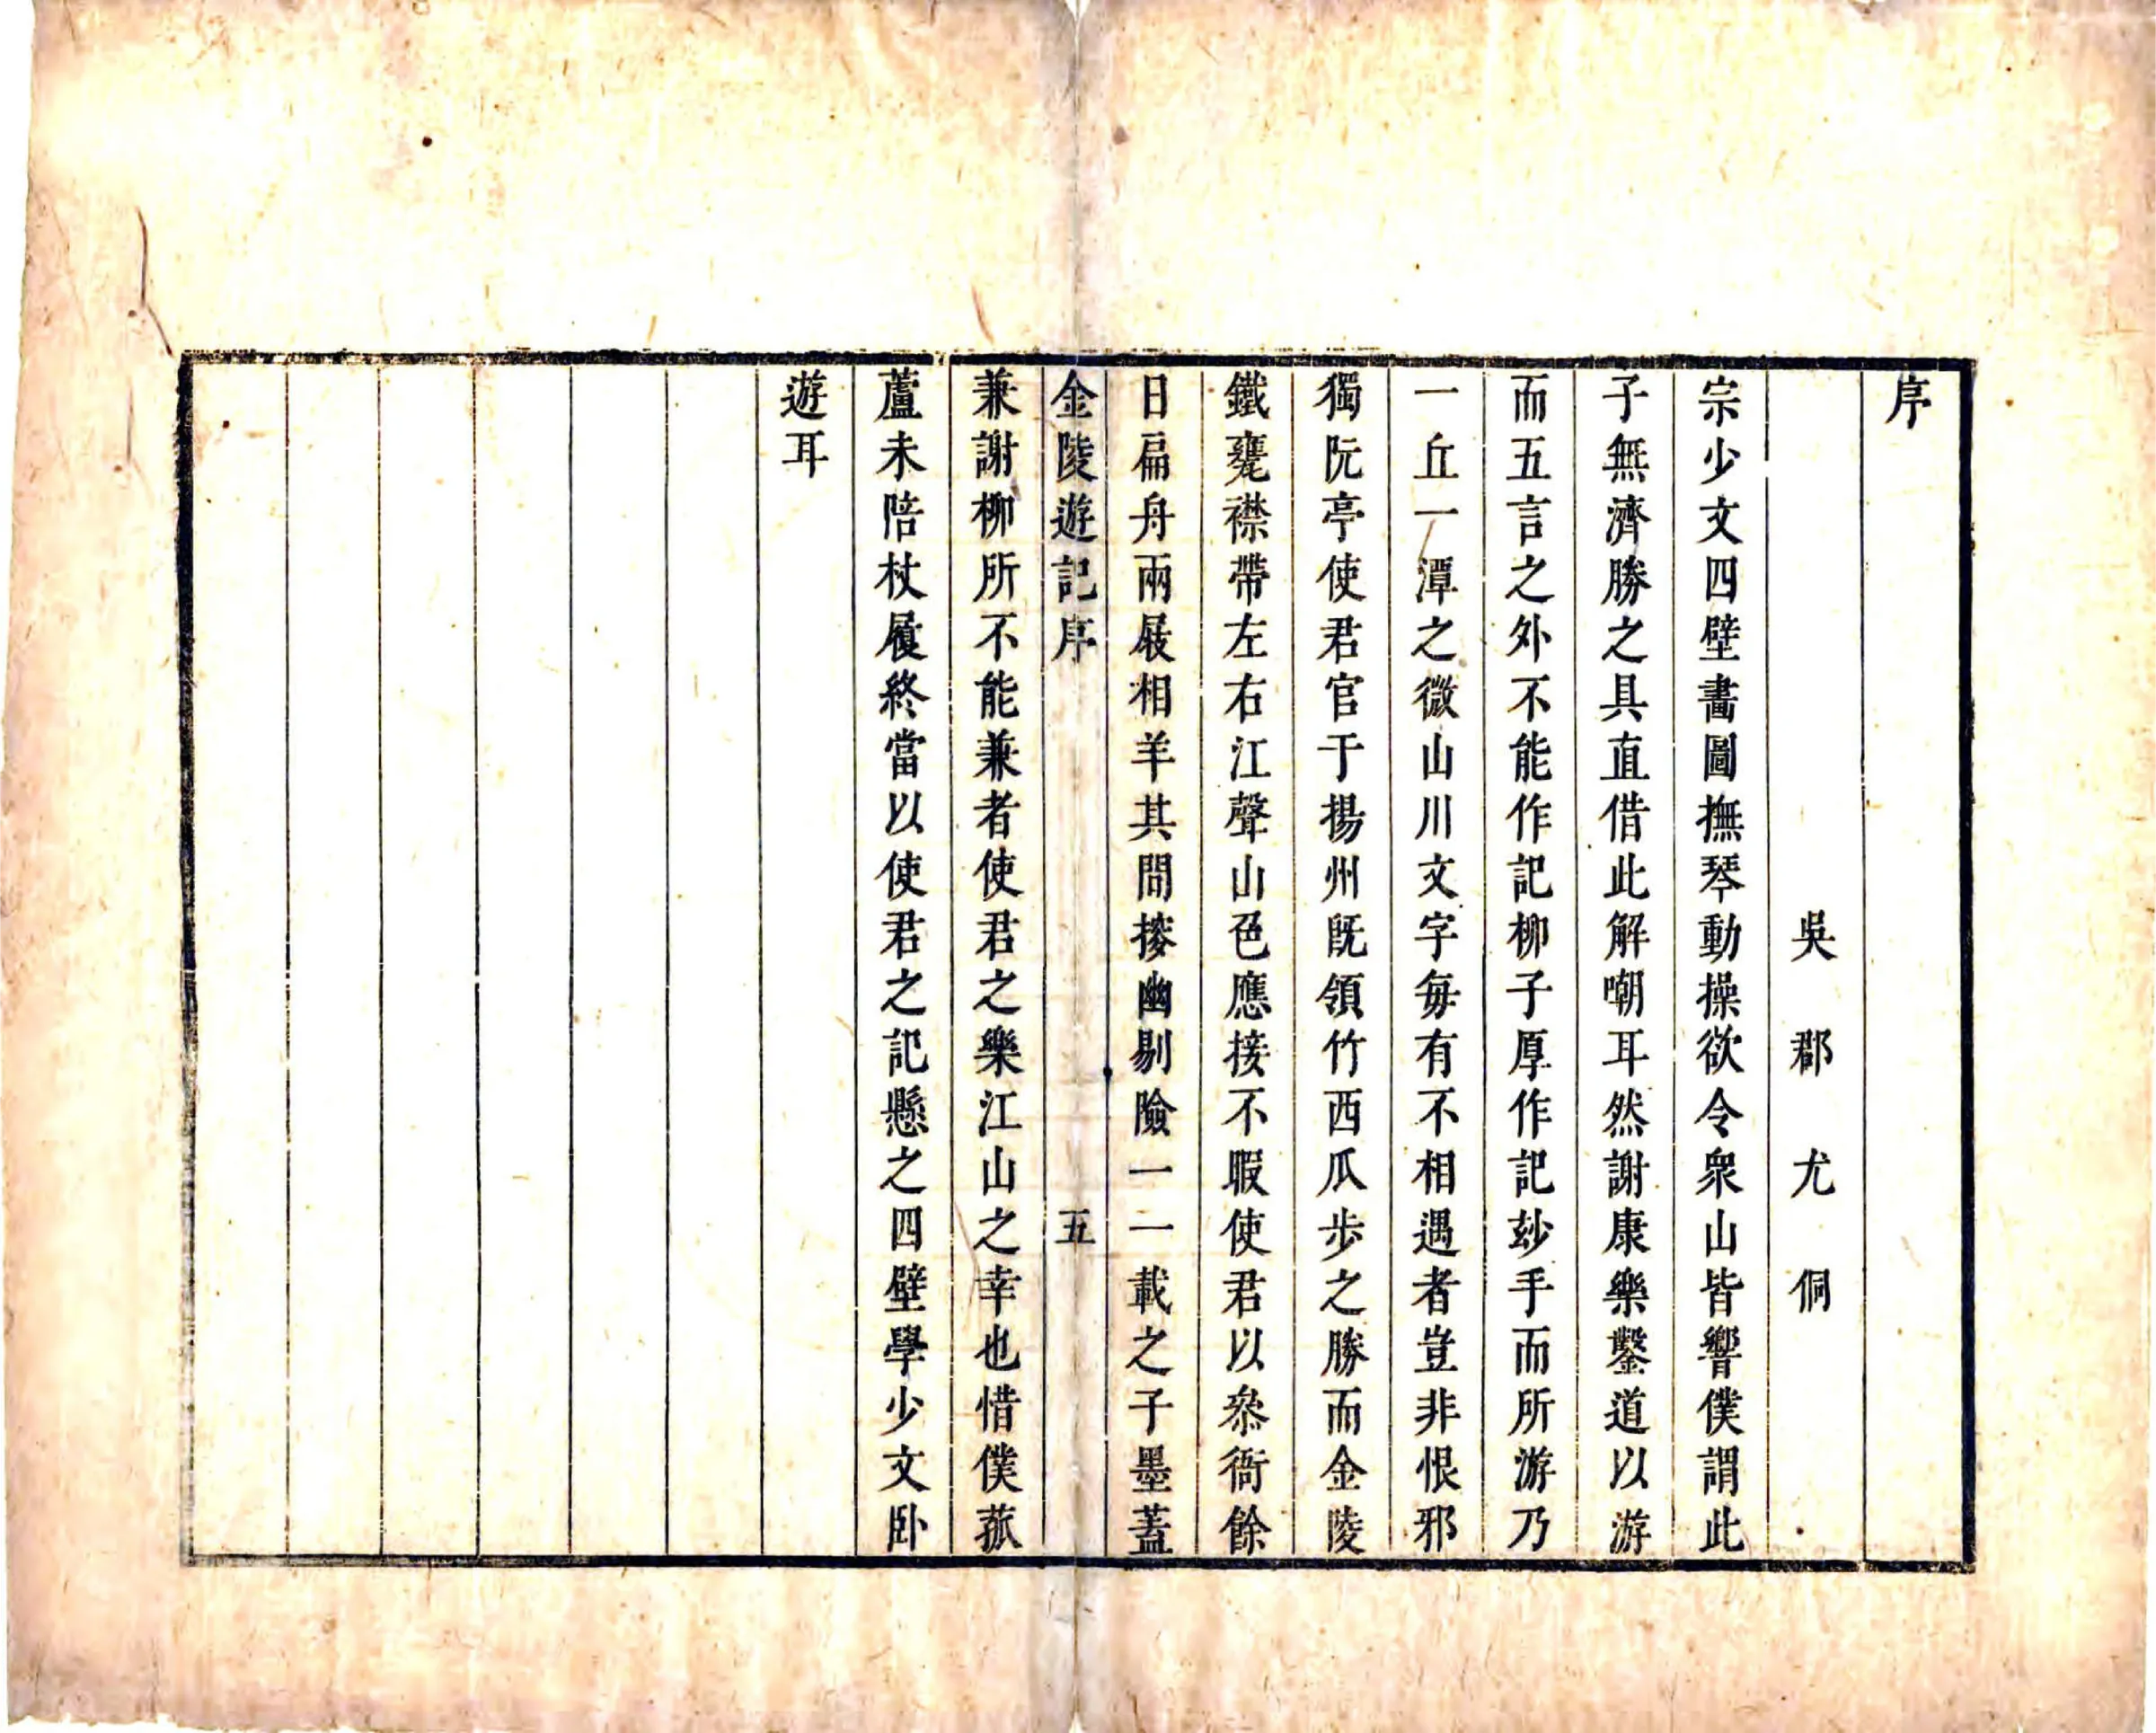 序
吳郡尤侗
宗少文四壁畵圖撫琴動操欲令衆山皆響僕謂此
子無濟勝之具直借此解嘲耳然謝康樂鑿道以游
而五言之外不能作記柳子厚作記玅手而所游乃
一丘一潭之微山川文字每有不相遇者豈非恨邪
獨阮亭使君官于揚州既領竹西瓜步之勝而金陵
鐵甕襟帶左右江聲山色應接不暇使君以叅衙餘
日扁舟兩屐相羊其間搜幽剔險一一載之子墨蓋
金陵遊記序 五
兼謝柳所不能兼者使君之樂江山之幸也惜僕菰
蘆未陪杖屨終當以使君之記懸之四壁學少文卧
遊耳